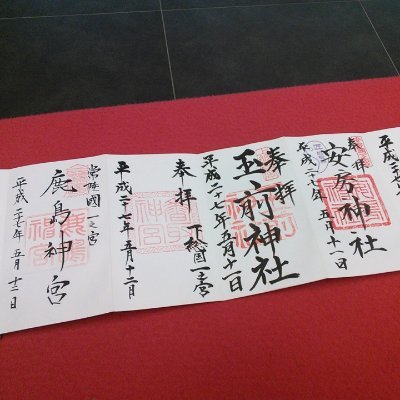 平成二十七
奉拝
安房神社
平成二十七年 五月十一日
奉拝
玉前神社
平成二十七年五月十一日
奉拝
下総國一之宮
平成二十七年 五月十二日
常陸國一之宮
鹿島神宮
平成二十七年 五月十二日